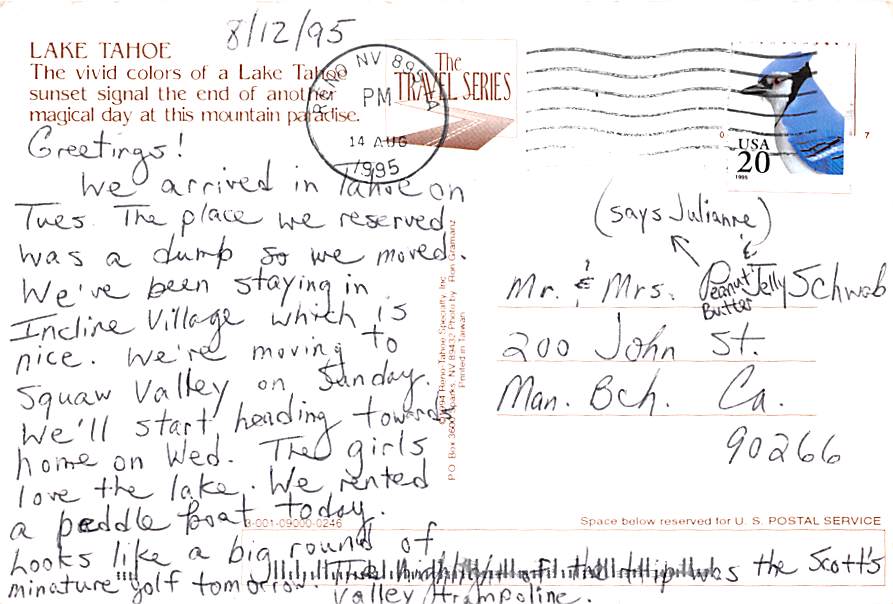 8/12/95
LAKE TAHOE
The vivid colors of a Lake Tahoe
sunset signal the end of another
magical day at this mountain paradise.
The
TRAVEL SERIES
RENO NV 895
PM
14 AUG
1995
USA
20
1995
Greetings!
We arrived in Tahoe on
Tues. The place we reserved
was a dump so we moved.
We've been staying in
Incline Village which is
nice. We're moving to
Squaw Valley on Sunday.
We'll start heading towards
home on Wed. The girls
love the lake. We rented
a peddle boat today.
Looks like a big round of
minature golf tomorrow. The highlight of the trip was the Scott's
Valley trampoline.
Reno-Tahoe Specialty, Inc.
Photo by Ron Gramanz
P O Box 360 Sparks, NV 89432
Printed in Taiwan
(says Julianne)
Mr. & Mrs. Peanut Butter & Jelly Schwab
200 John St.
Man. Bch. Ca.
90266
3-001-09000-0246
Space below reserved for U. S. POSTAL SERVICE